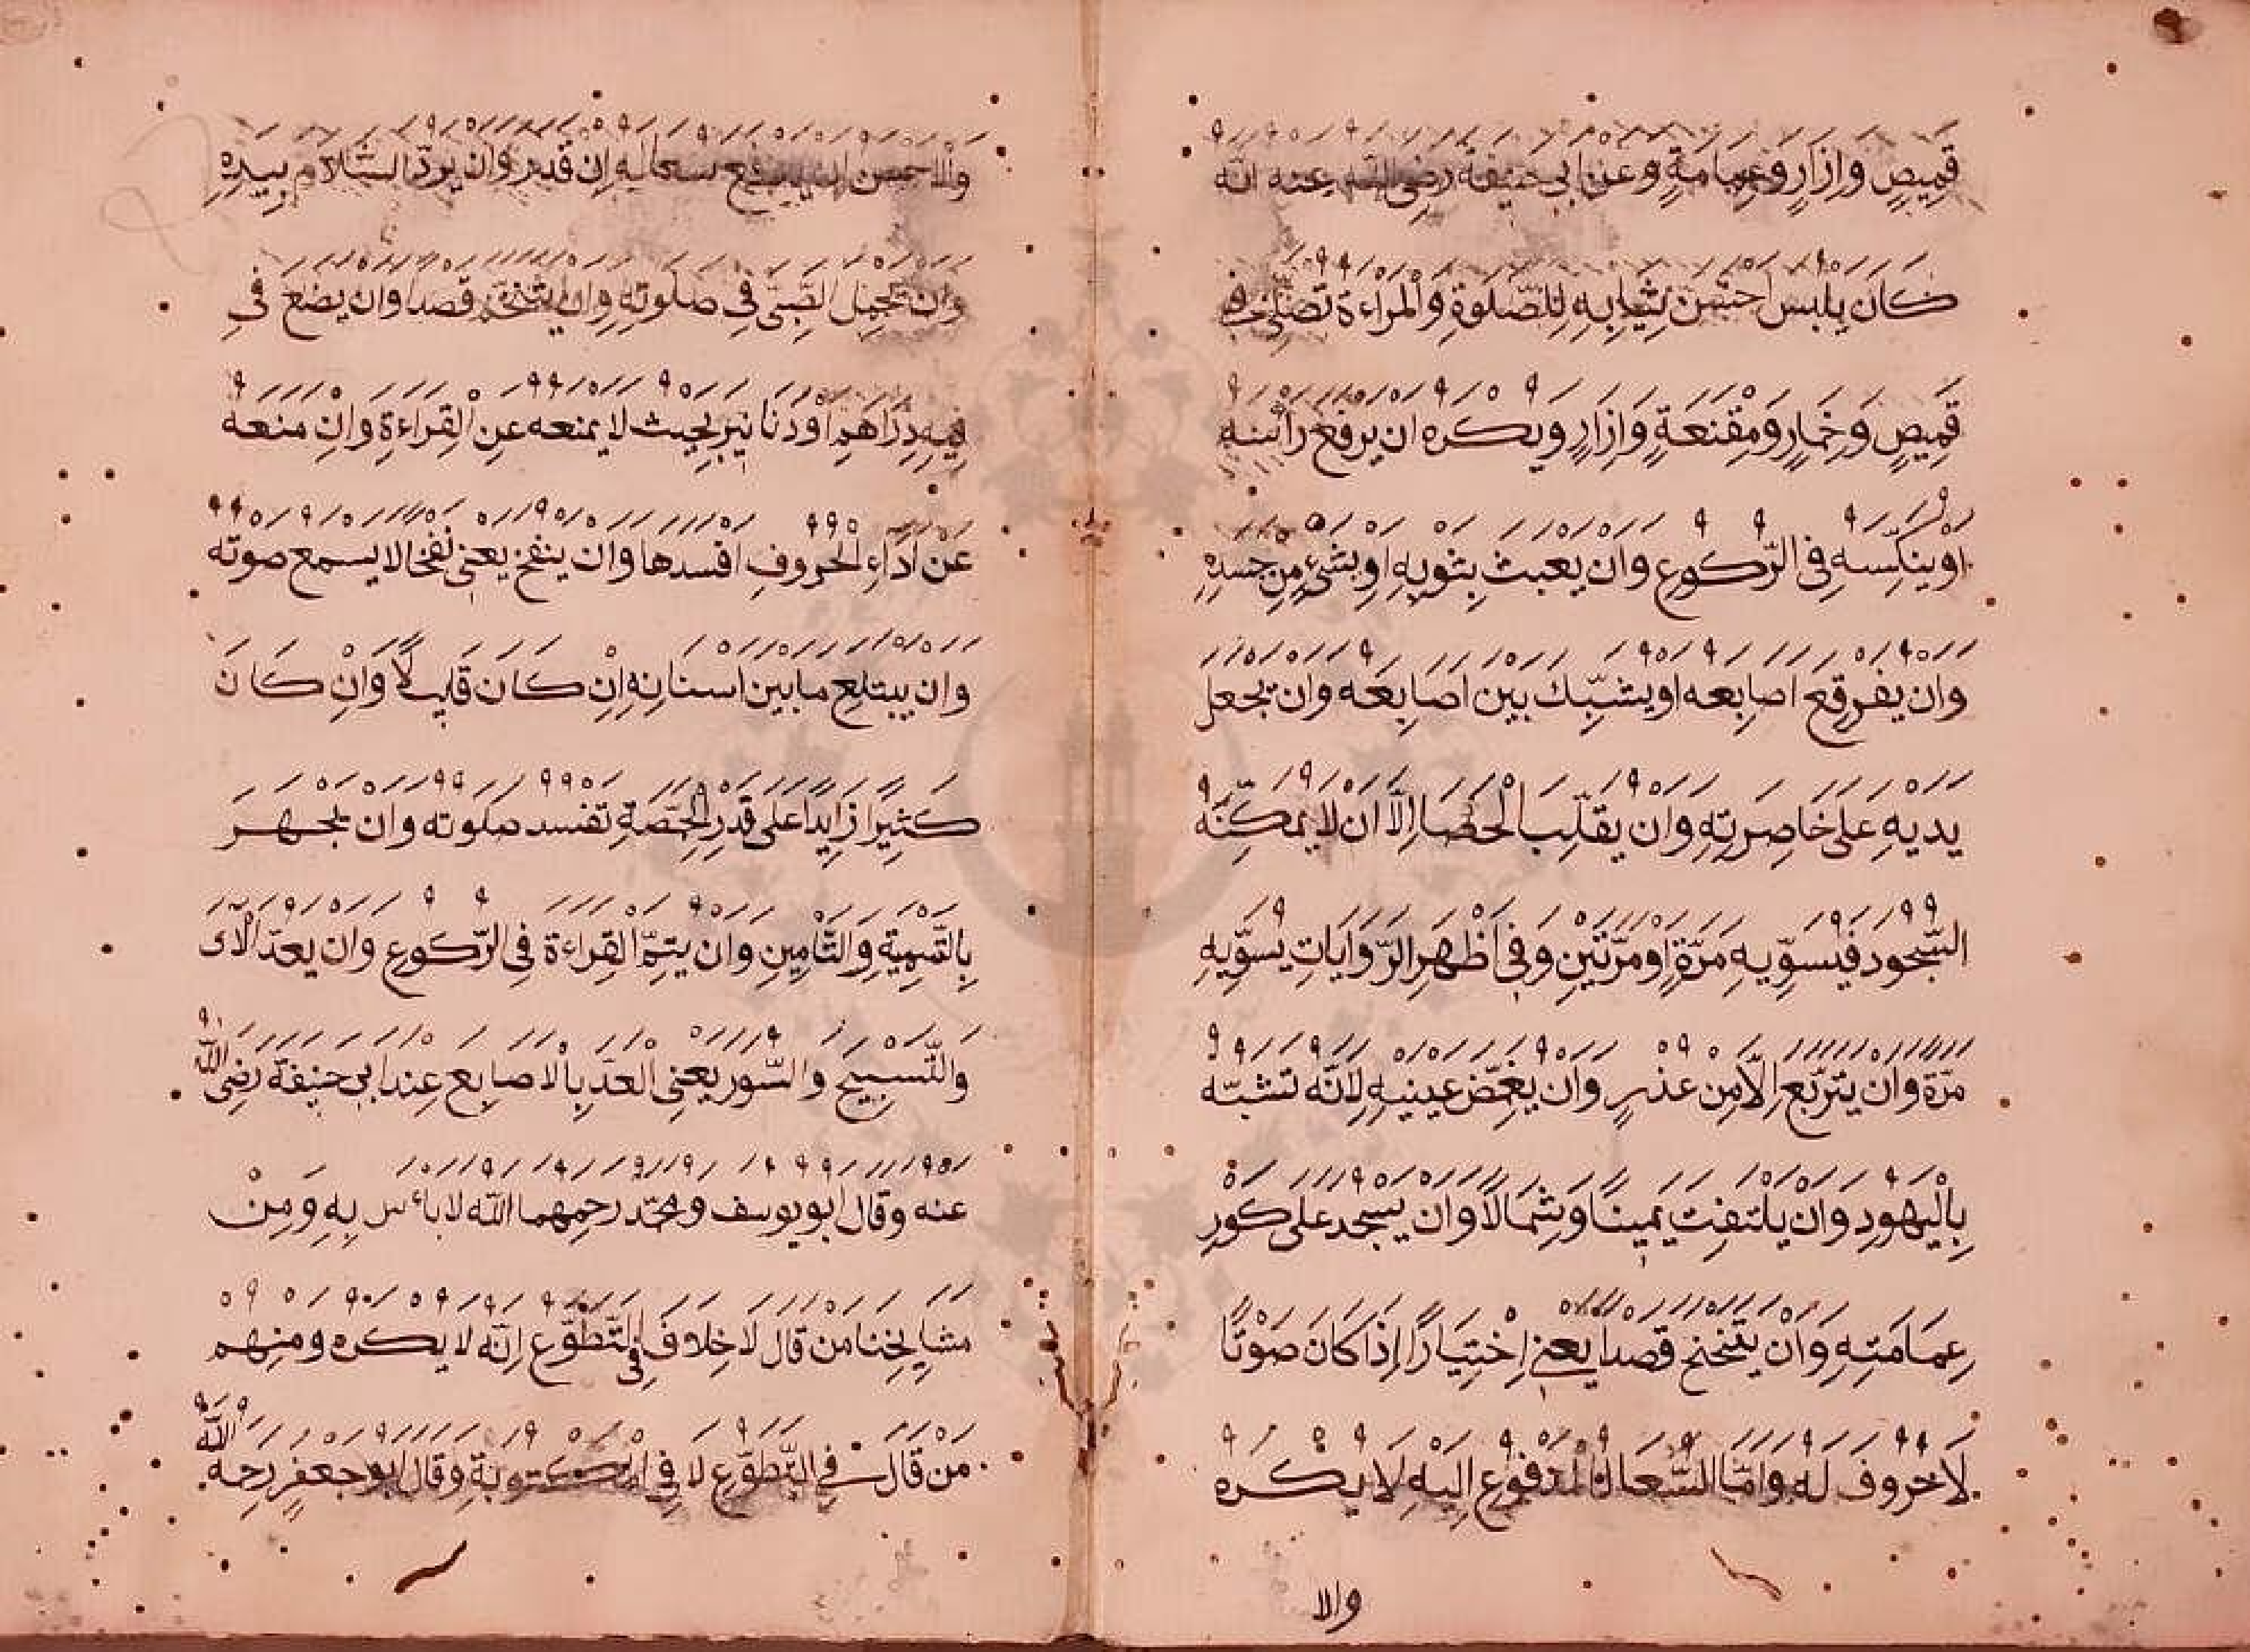 قميص وازار وعمامة وعن ابي حنيفة رضى الله عنه انه
كان يلبس احسن ثيابه للصلوة والمراءة تصلى في
قميص وخمار ومقنعة وازار ويكره ان يرفع رأسه
او ينكسه في الركوع وان يعبث بثوبه او بشئ من جسده
وان يفرقع اصابعه او يشبك بين اصابعه وان يجعل
يديه على خاصرته وان يقلب الحصا الا ان لا يمكنه
السجود فيسويه مرة او مرتين وفي اظهر الروايات يسويه
مرة وان يتربع الا من عذر وان يغمض عينيه لانه تشبه
باليهود وان يلتفت يمينا وشمالا وان يسجد على كور
عمامته وان يتنحنح قصدا يعني اختيارا اذا كان صوتا
لا حروف له واما السعال المدفوع اليه لا يكره
والا
والاحسن ان يدفع سعاله ان قدر وان يرد السلام بيده
وان يحمل الصبى في صلوته وان يتنخم قصدا وان يضع في
فيه دراهم او دنانير بحيث لا يمنعه عن القراءة وان منعه
عن اداء الحروف افسدها وان ينفخ يعني نفخا لا يسمع صوته
وان يبتلع ما بين اسنانه ان كان قليلا وان كان
كثيرا زايدا على قدر الحمصة تفسد صلوته وان يجهر
بالتسمية والتامين وان يتم القراءة في الركوع وان يعد الاى
والتسبيح والسور يعني العد بالاصابع عند ابي حنيفة رضى الله
عنه وقال ابو يوسف ومحمد رحمهما الله لا بائس به ومن
مشايخنا من قال لا خلاف في التطوع انه لا يكره ومنهم
من قال في التطوع لا في المكتوبة وقال ابو جعفر رحمه الله